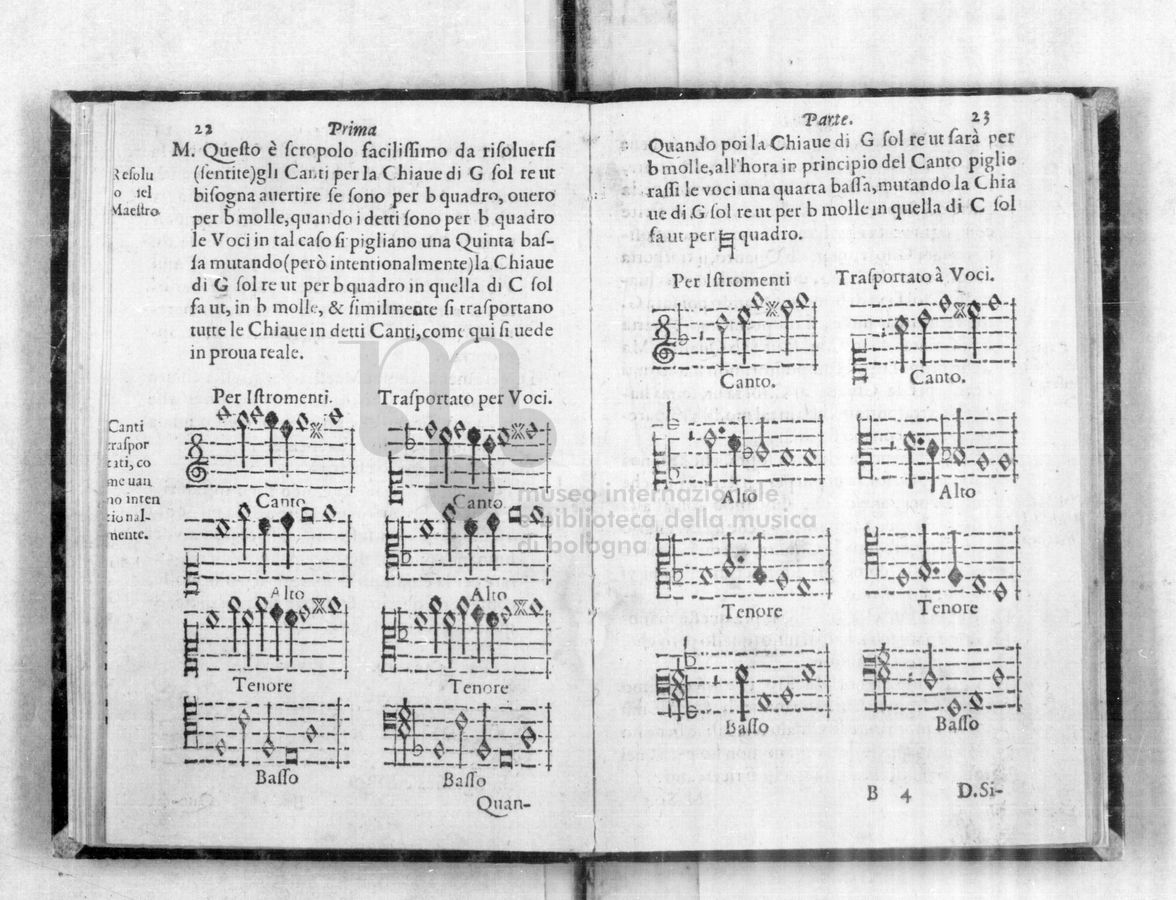 22 Prima
M. Queſto è ſcropolo faciliſſimo da riſoluerſi
(ſentite)gli Canti per la Chiaue di G ſol re ut
biſogna auertire ſe ſono per b quadro, ouero
per b molle,quando i detti ſono per b quadro
le Voci in tal caſo ſi pigliano una Quinta baſ-
ſa mutando(però intentionalmente)la Chiaue
di G ſol re ut per b quadro in quella di C ſol
fa ut, in b molle, & ſimilmente ſi traſportano
tutte le Chiaue in detti Canti,come qui ſi uede
in proua reale.
Reſolu
o del
Maeſtro
Per Iſtromenti. Traſportato per Voci.
Canti
traſpor
tati, co
me uan
no inten
tional-
mente.
Canto Canto
Alto Alto
Tenore Tenore
Baſſo Baſſo
Quan-
Parte. 23
Quando poi la Chiaue di G ſol re ut ſarà per
b molle,all'hora in principio del Canto piglio
raſſi le voci una quarta baſſa,mutando la Chia
ue di G ſol re ut per b molle in quella di C ſol
fa ut per ♮ quadro.
Per Iſtromenti Traſportato à Voci.
Canto. Canto.
Alto Alto
Tenore Tenore
Baſſo Baſſo
B 4 D.Si-
museo internazionale
e biblioteca della musica
di bologna